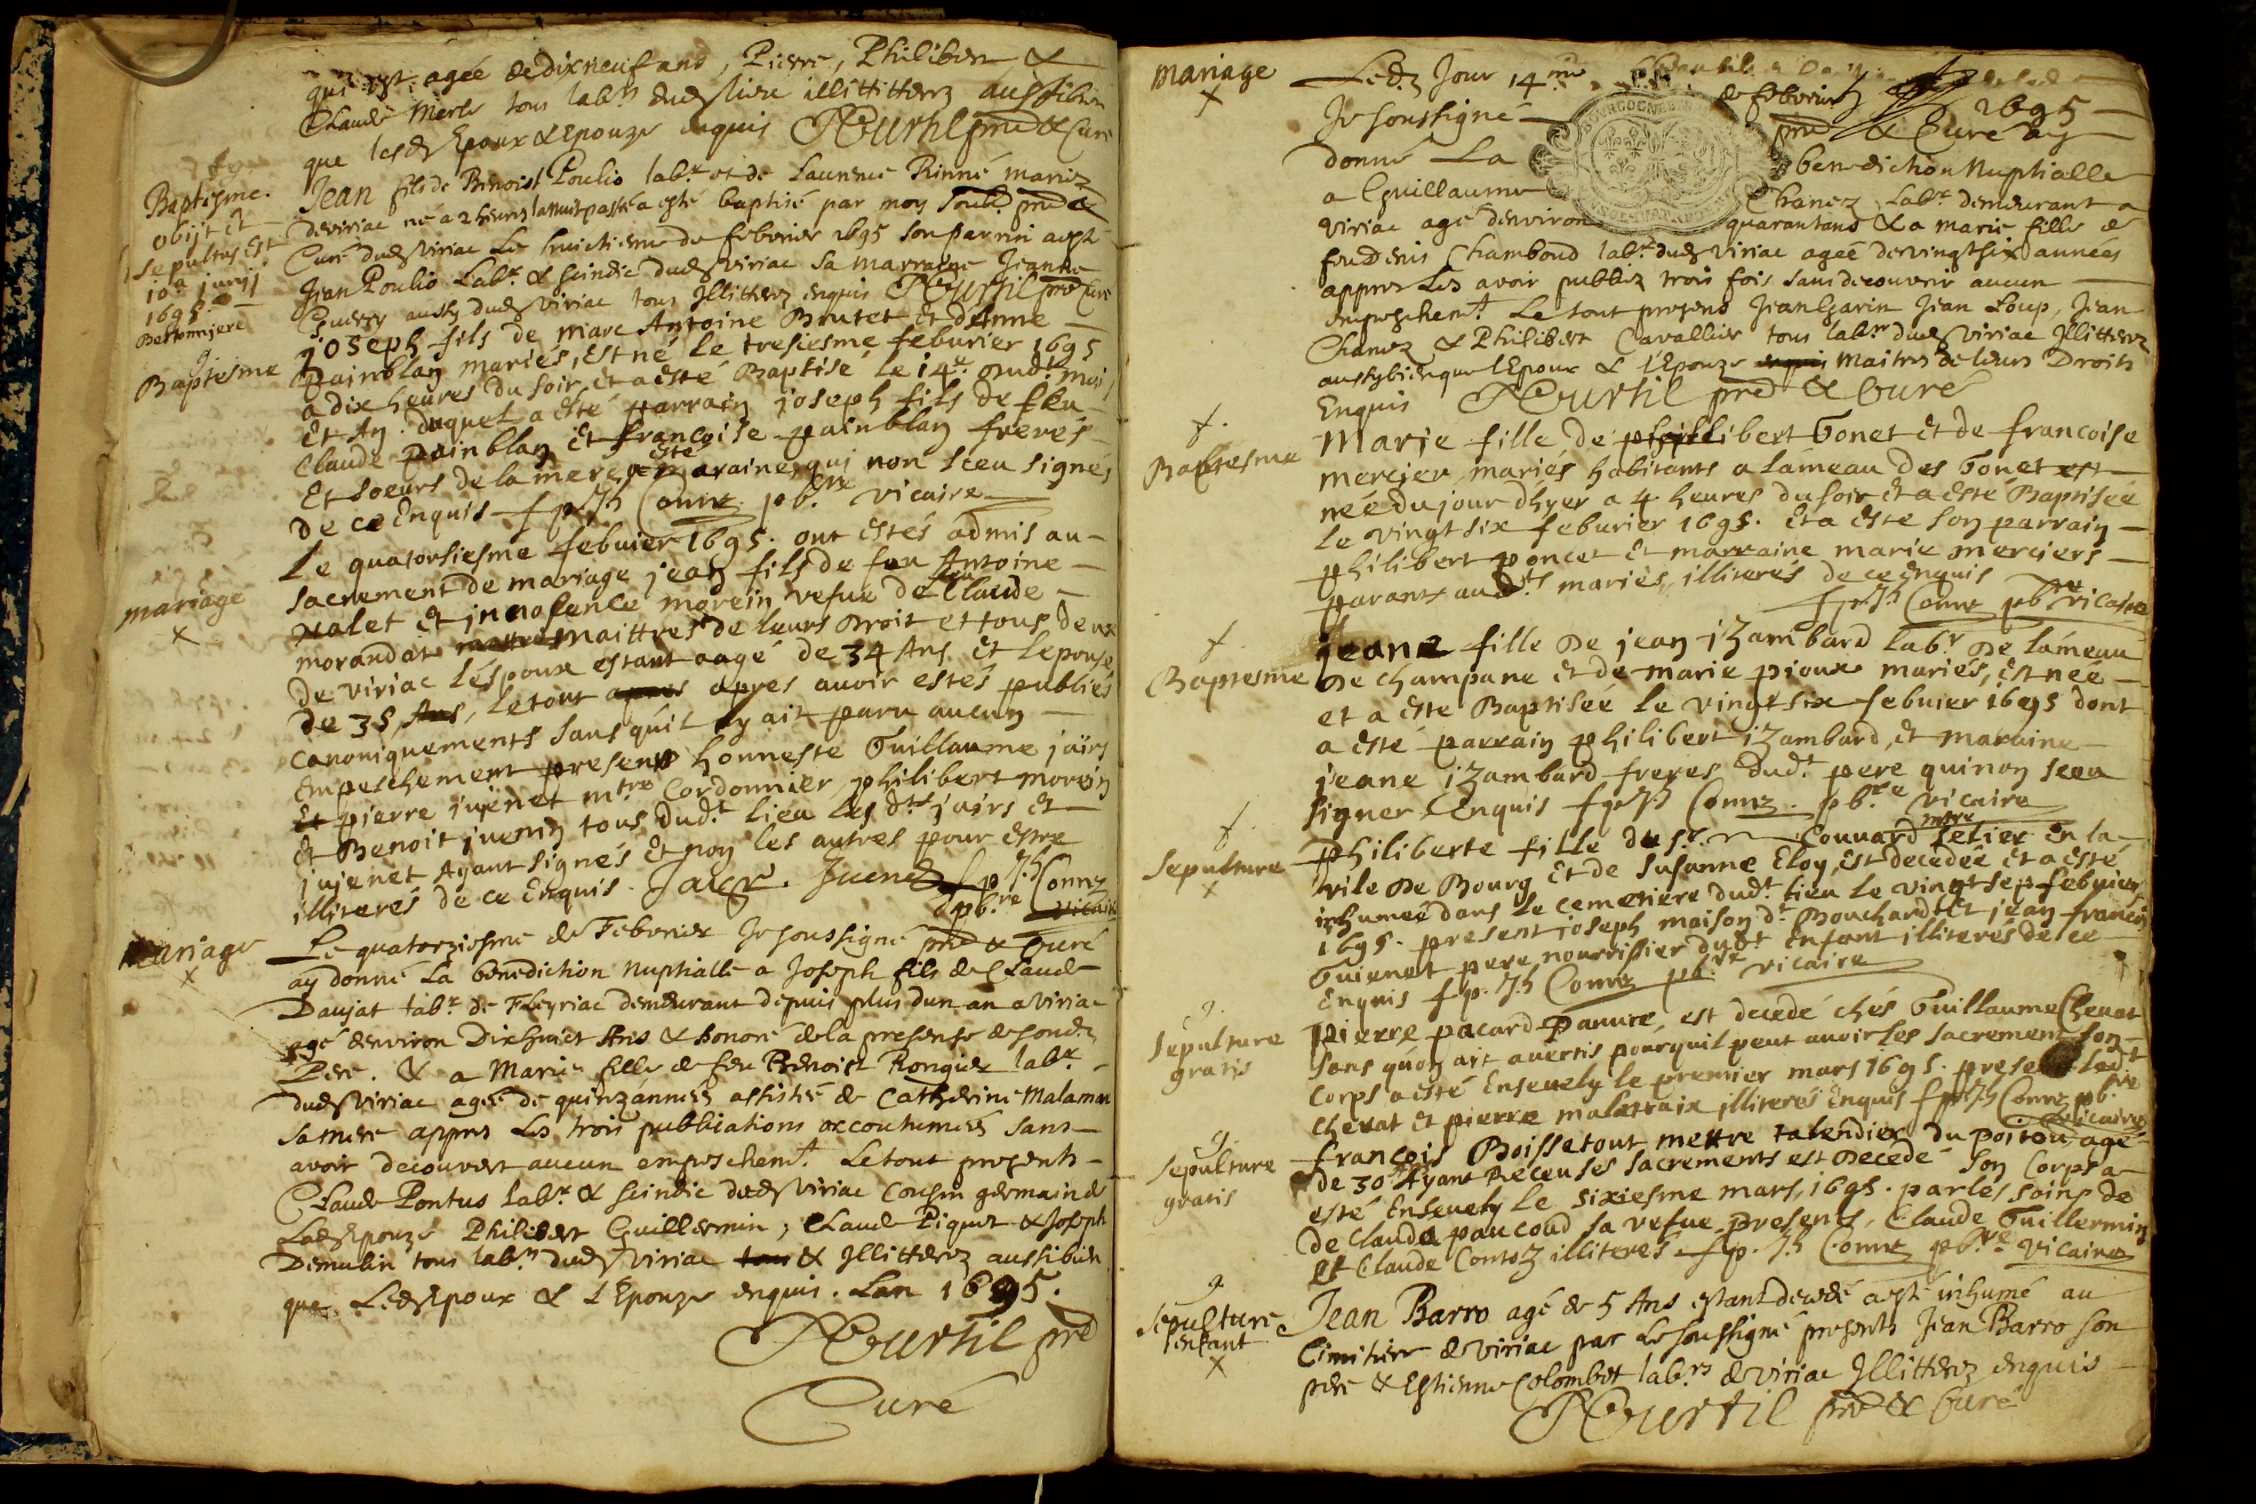 qui est agée de dix neuf ans, Pierre, Philibert &
Claude Merle tous lab.rs dud lieu illittterez aussibien
que lesd Epoux & Epouze enquis PCurtil pbre & Curé
Baptisme.
Jean fils de Benoist Poulio lab.r et de Laurence Rinné mariez
obijt et
sepultus est
10.a junij
1695
deviriac né a 2 heures la nuit passé a esté baptisé par moy soub.é pbre &
Curé dud viriac Le huictieme de febvrier 1695 son parrin a esté
Jean Poulio Lab.r & scindic dud viriac sa marraine Jeanne
Guerry aussy dud viriac tous Jllitterez enquis PCurtil pbre Curé
Baptesme
joseph fils de marc Antoine Brutet et d'Anne
painblan mariés, est né le tresiesme feburier 1695
a dix heures du soir et a esté Baptisé le 14.e dud.t mois
Et An. duquel a esté parrain joseph fils de feu
Claude painblan et françoise painblan freres
Et soeurs de la mere a esté maraine, qui non sceu signés
de ce Enquis f p. Jh Connz pb.re vicaire
mariage
x
Le quatorsiesme febuier 1695. ont estés admis au
sacrement de mariage jean fils de feu Antoine
palet et jnnosence morein vefue de feu Claude
morandat maittres de leurs Droit et tous deux
de viriac l'éspoux estant aagé de 34 Ans et l'epouse
de 35 Ans, le tout apres apres auoir estés publiés
canoniquements sans qu'il ny ait paru aucun
empeschement presens honneste Guillaume jaïrs
Et pierre jujenet m.tre Cordonnier, philibert morein
et Benoit juenin tous dud.t lieu les d.ts jairs et
jujenet Ayant signés et non les autres pour estre
illiterés de ce Enquis. Jacr. Juenet f p. Jh Connz
pb.re vicaire
mariage
x
Le quatorziesme de Febvrier Je soussigné pbre & Curé
ay donné La benediction Nuptialle a Joseph fils de Claude
Daujat lab.r de Fleyriac demeurant depuis plus dun an a viriac
agé denviron Dixhuict Ans & honoré de la presense de sond.
Pere. & a Marie fille de feu Benoist Rongier lab.r
dud viriac agée de quinz'années assistée de Catherine Malaman
sa mere appres Les trois publications accoutumées sans
avoir decouvert aucun empeschem.t Le tout presents
Claude Pontus lab.r & scindic dud viriac Cousin germain de
Lad Epouze Philibert Guillermin, Claude Piquet & Joseph
Demulin tous lab.rs dud viriac tous & Jllitterez aussibien
que Led Epoux & L'Epouze enquis. Lan 1695.
PCurtil pbre
Curé
mariage
x
Led. Jour 14.me de febvrier 1695
Je soussigné pbre & Curé ay
donné La benediction Nuptialle
a Guillaume Chanez Lab.r demeurant a
viriac agé denviron quarantans & a marie fille de
feu Denis Chambond lab.r dud viriac agée de vingt six années
appres Les avoir publiez trois fois sans decouvrir aucun
empeschem.t Le tout presens Jean Garin Jean Loup, Jean
Chanez & Philibert Cavallier tous lab.rs dud viriac Jllitterez
aussybienque l'Epoux & l'Epouze enquis Maitres de leurs Droits
Enquis PCurtil pbre & Curé
Baptesme
Marie fille de philibert Gonet et de francoise
mercier, mariés habitants a lámeau des Gonet est
née du jour d'hyer a 4 heures du soir et a esté Baptisée
le vingt six feburier 1695. et a esté son parrain
philibert poncet et marraine marie merciers
parants aud.ts mariés, illiterés de ce Enquis
f p. Jh Connz pb.re vicaire
Baptesme
jeane fille de jean jzambard lab.r de lámeau
de champane et de marie pioux mariés, est née
et a esté Baptisée le vingt six febuier 1695 dont
a esté parrain philibert jzambard, et maraine
jeane jzambard freres dud.t pere qui non sceu
signer Enquis f p. Jh Connz. pb.re vicaire
sepulture
x
philiberte fille du s.r Couuard mtre selier en la
vile de Bourg et de Susanne Eloy, est decedée et a esté
inhumée dans le cemetiere dud.t lieu le vingt sep febuier
1695. present joseph maison d.t Bouchard et jean francois
Guienet pere nourrissier dud.t Enfant illiterés de ce
Enquis f p. Jh Connz pb.re vicaire
sepulture
gratis
pierre pacard panure, est decedé chés Guillaume Chenat
sans qu'on ait auertis pourquil peut auoir les sacrement son
corps a esté Enseuely le premier mars 1695. present led.t
chenat et pierre malatraix illiterés Enquis f p. Jh Connz pb.re
vicaire
sepulture
gratis
francois Boissetout mettre talendier du poitou, agé
de 30 Ayant Réceu ses sacrements est decedé son corps a
esté Enseuely le sixiesme mars, 1695. par les soins de
de claude paucoud sa vefue presents, Claude Guillermin
et Claude Contoz illiterés f p. Jh Connz pb.re vicaire
sepulture
denfant
x
Jean Barro agé de 5 Ans estant decedé a esté inhumé au
Cimitiere de viriac par Le soussigné presents Jean Barro son
pere & Estienne Colombet lab.rs de viriac Jllitterez enquis
PCurtil pbre & Curé